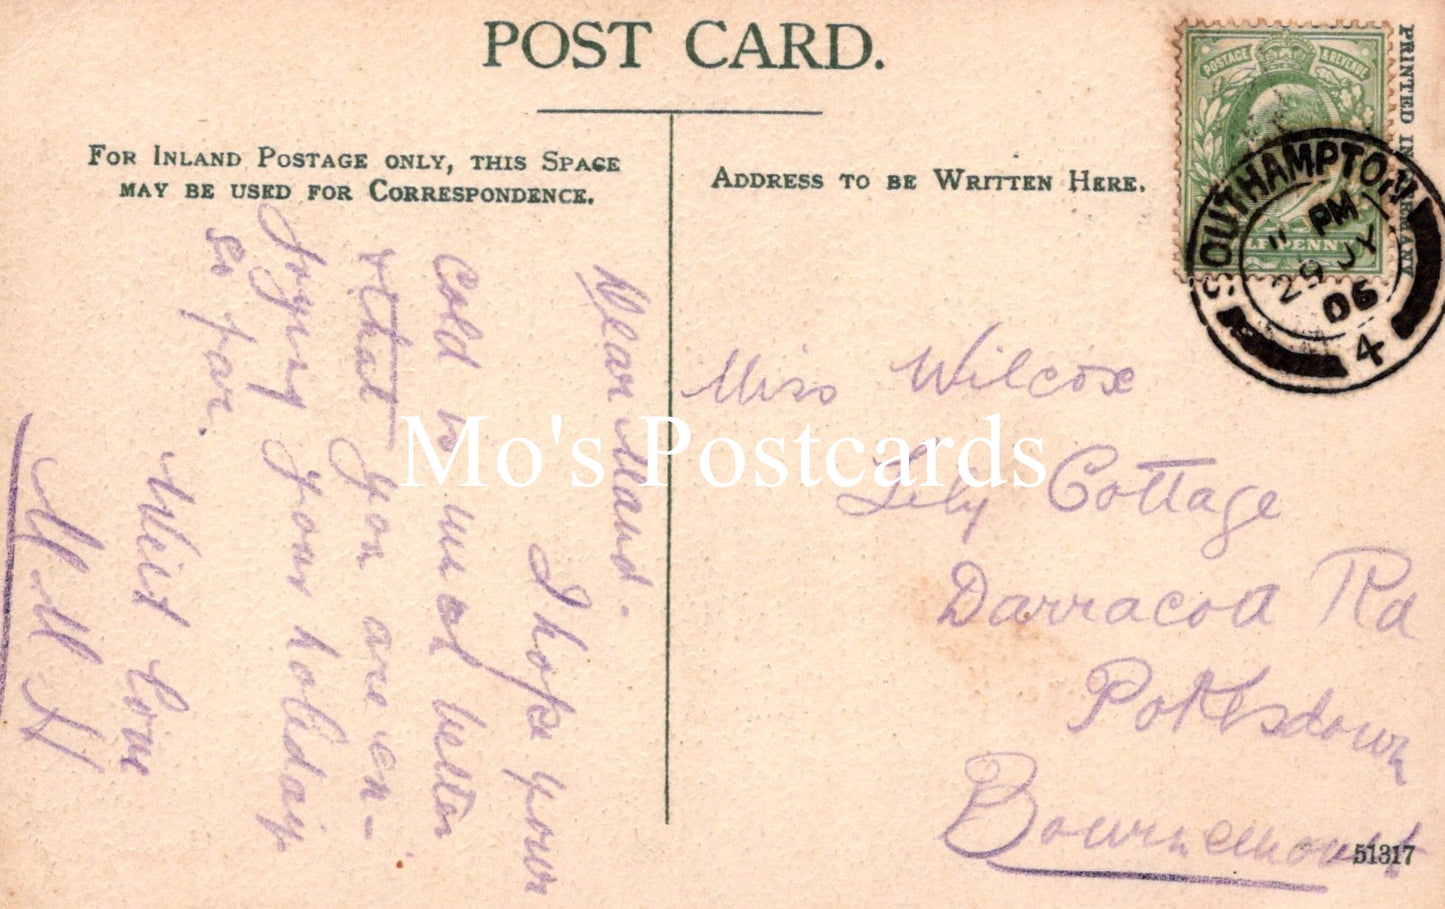 POST CARD.
FOR INLAND POSTAGE ONLY, THIS SPACE
MAY BE USED FOR CORRESPONDENCE.
ADDRESS TO BE WRITTEN HERE.
POSTAGE & REVENUE
HALFPENNY
PRINTED IN GERMANY
SOUTHAMPTON
11 PM
29 JY
06
4
Dear Maud.
I hope your
cold is much better
& that you are en-
joying your holiday
so far.
With love
M. M. H
Miss Wilcox
Lily Cottage
Darracott Rd
Pokesdown
Bournemouth
51317
Mo's Postcards